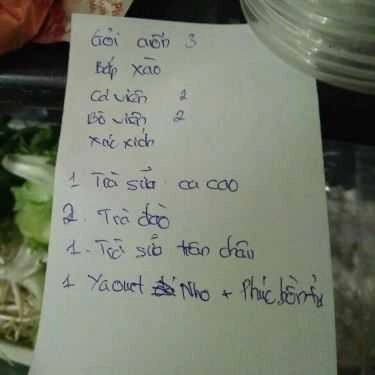 Gỏi cuốn 3
Bắp xào
Cá viên 2
Bò viên 2
Xúc xích
1 Trà sữa ca cao
2. Trà đào
1. Trà sữa trân châu
1 Yaout Nho + Phúc bồn tử